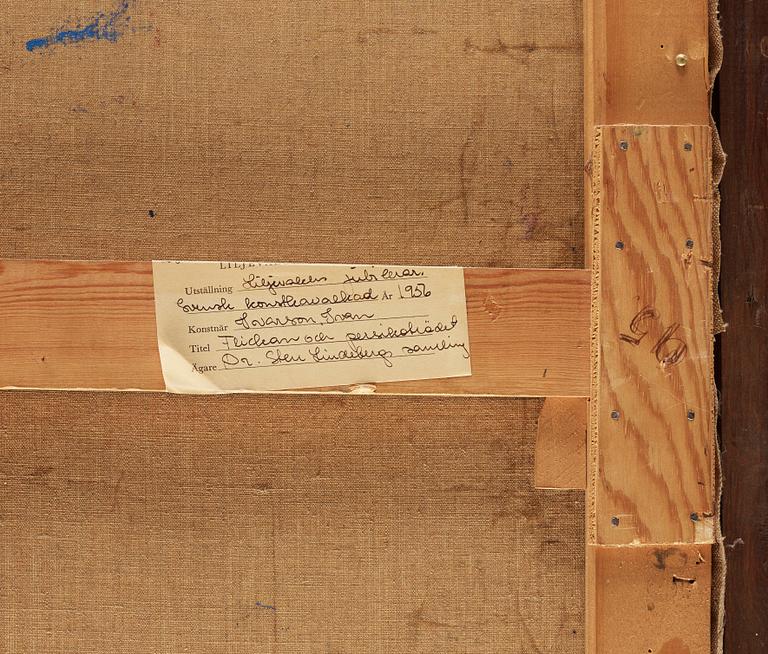 LILJEVA
Utställning Liljevalchs jubileur.
Svensk konstkavalkad År 1956
Konstnär Ivarson, Ivan
Titel Flickan och persikoträdet
Ägare Dr. Sten Lindebergs samling
95